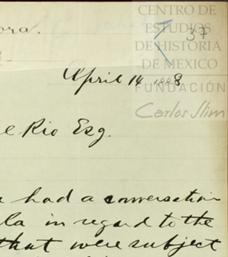 ora.
CENTRO DE
ESTUDIOS
DE HISTORIA
DE MEXICO
FUNDACIÓN
Carlos Slim
37
April 14
el Rio Esq.
had a conversation
la in regard to the
that were subject